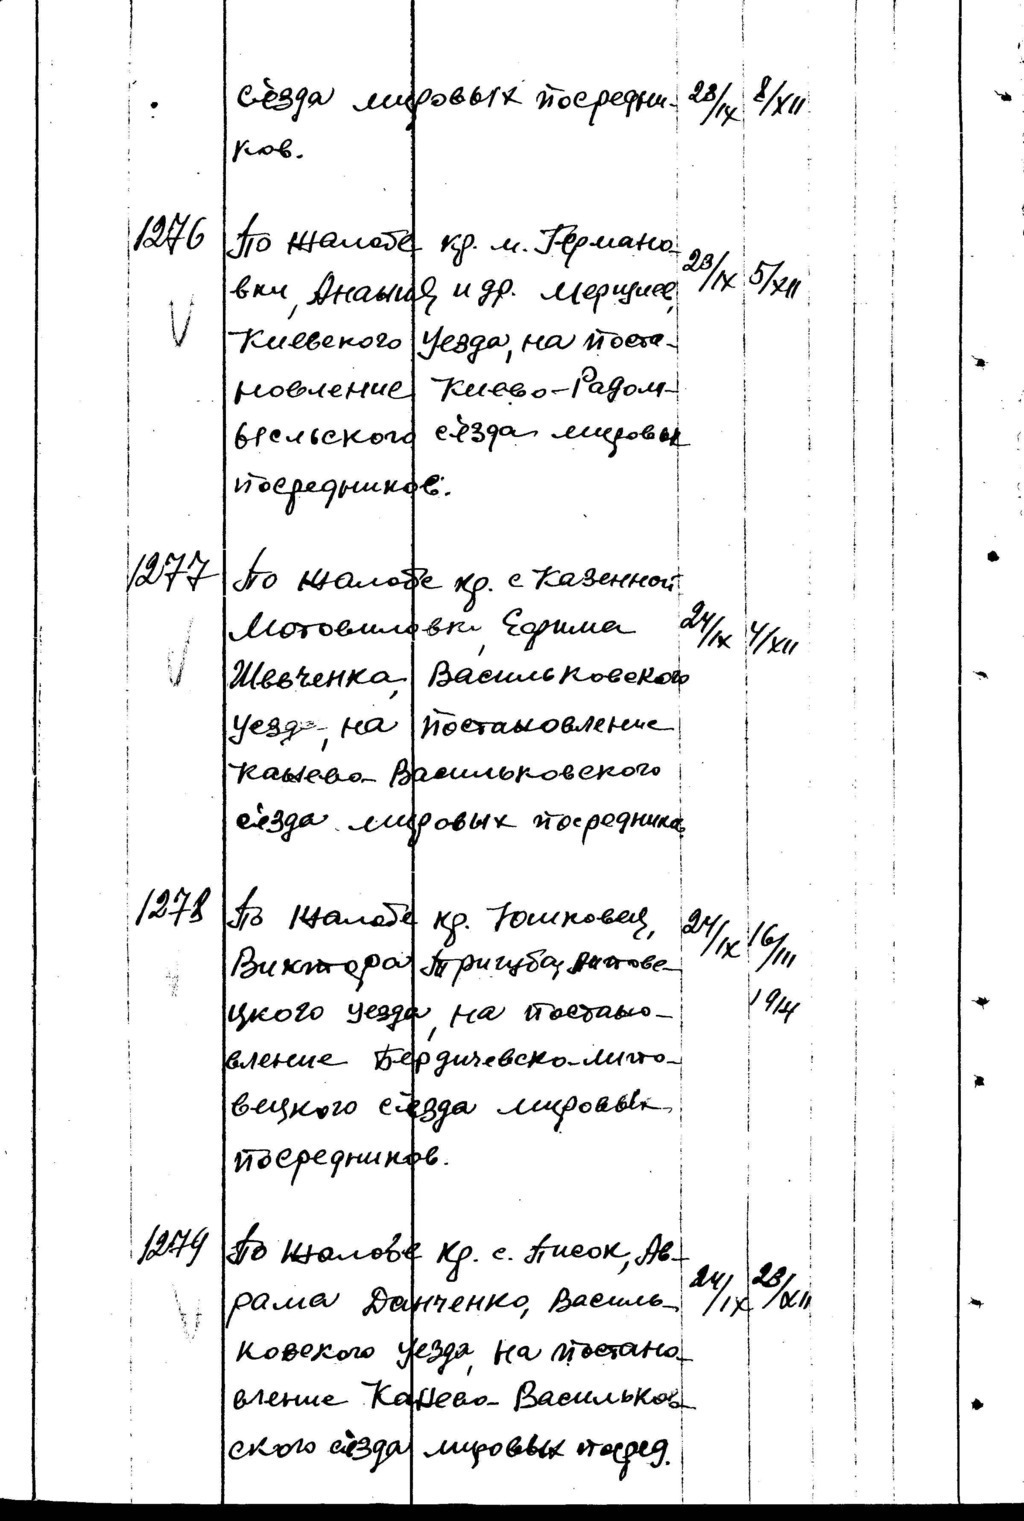 съезда мировых посредни- 23/IX 8/XII
ков.
1276 По жалобе кр. м. Германо-
вки, Анании и др. 23/IX 5/XII
Киевского уезда, на поста-
новление Киево-Радом-
ысльского съезда мировых
посредников.
1277 По жалобе кр. с Казенной
Мотовиловки, Ефима 24/IX 4/XII
Шевченка, Васильковского
уезда, на постановление
Канево-Васильковского
съезда мировых посредников
1278 По жалобе кр. Юшковец, 24/IX 16/III
Виктора Тригуба, Липове-
цкого уезда, на постано- 1914
вление Бердичевско-Липо-
вецкого съезда мировых
посредников.
1279 По жалобе кр. с. Писок, Ав-
рама Данченко, Василь- 24/IX 23/XII
ковского уезда, на постано-
вление Канево-Васильков-
ского съезда мировых посред.